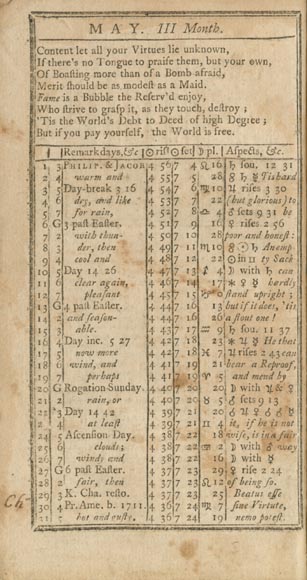 MAY. III Month.
Content let all your Virtues lie unknown,
If there's no Tongue to praise them, but your own,
Of Boasting more than of a Bomb afraid,
Merit should be as modest as a Maid.
Fame is a Bubble the Reserv'd enjoy,
Who strive to grasp it, as they touch, destroy;
'Tis the World's Debt to Deed of high Degree;
But if you pay yourself, the World is free.
Remark. days, &c. ☉ris ☉set ☽ pl. Aspects, &c.
1 3 PHILIP. & JACOB 4 56 7 4 ♌ 16 ♄ sou. 12 31
2 4 warm and 4 55 7 5 28
3 5 Day-break 3 16 4 54 7 6 ♍ 10 ♃ rises 3 30
4 6 dry, and like 4 53 7 7 22 (but glorious) to
5 7 for rain, 4 52 7 8 ♎ 4 ♂ sets 9 31 be
6 G 3 past Easter. 4 51 7 9 16 ♀ rises 2 56
7 2 with thun- 4 50 7 10 28 poor and honest:
8 3 der, then 4 49 7 11 ♏ 10
9 4 cool and 4 48 7 12
10 5 Day 14 26 4 47 7 13 ☽ with ♄ can
11 6 clear again, 4 46 7 14 17 ✶ ♀ ☿ hardly
12 7 pleasant 4 45 7 15 stand upright;
13 G 4 past Easter. 4 44 7 16 13 but if it does, 'tis
14 2 and season- 4 44 7 16 26 a stout one!
15 3 able. 4 43 7 17 ♒ 9 ♄ sou. 11 37
16 4 Day inc. 5 27 4 42 7 18 23 He that
17 5 now more 4 42 7 18 ♓ 7 ♃ rises 2 43 can
18 6 wind, and 4 41 7 19 21 bear a Reproof,
19 7 perhaps 4 41 7 19 ♈ 5 and mend by
20 G Rogation-Sunday. 4 40 7 20 20
21 2 rain, or 4 40 7 20 ♉ 5 ♂ sets 9 13
22 3 Day 14 42 4 39 7 21 20
23 4 at least 4 39 7 21 ♊ 4 it, if he is not
24 5 Ascension-Day. 4 38 7 22 18 wise, is in a fair
25 6 clouds; 4 38 7 22 2 ☽ with ♂ way
26 7 winds and 4 38 7 22
27 G 6 past Easter. 4 37 7 23 29 ♀ rise 2 24
28 2 fair, then 4 37 7 23 ♌ 12 of being so.
29 3 K. Cha. resto. 4 37 7 23 25 Beatus esse
30 4 Pr. Ame. b. 1711. 4 36 7 24 ♍ 7 sine Virtute,
31 5 hot and gusty. 4 36 7 24 19 nemo potest.
Ch